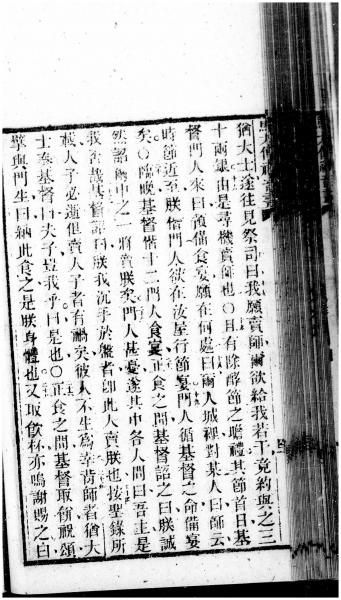 猶大士遂往見祭司曰我願賣師爾欲給我若干竟約與之三
十兩銀由是尋機賣師也○且有除酵節之瞻禮其節首日基
督門人來曰預備食宴願在何處曰爾入城裡對某人曰師云
時節近至朕偕門人欲在汝屋行節宴門人循基督之命備宴
矣○臨晚基督偕十二門人食宴正食之間基督語之曰朕誠
然語爾中之一將賣朕矣門甚憂遂其中各人問曰吾主是
我否哉基督曰同朕我沉手於盤者卽此人賣朕也按聖錄所
載人子必逝但賣人子者有禍矣彼人不生爲幸賣師者猶大
士奉基督曰夫子豈我乎曰是也○正食之間基督取餅祝頌
擘與門生曰納此食之是朕身體也又取飲杯亦嗚謝賜之曰